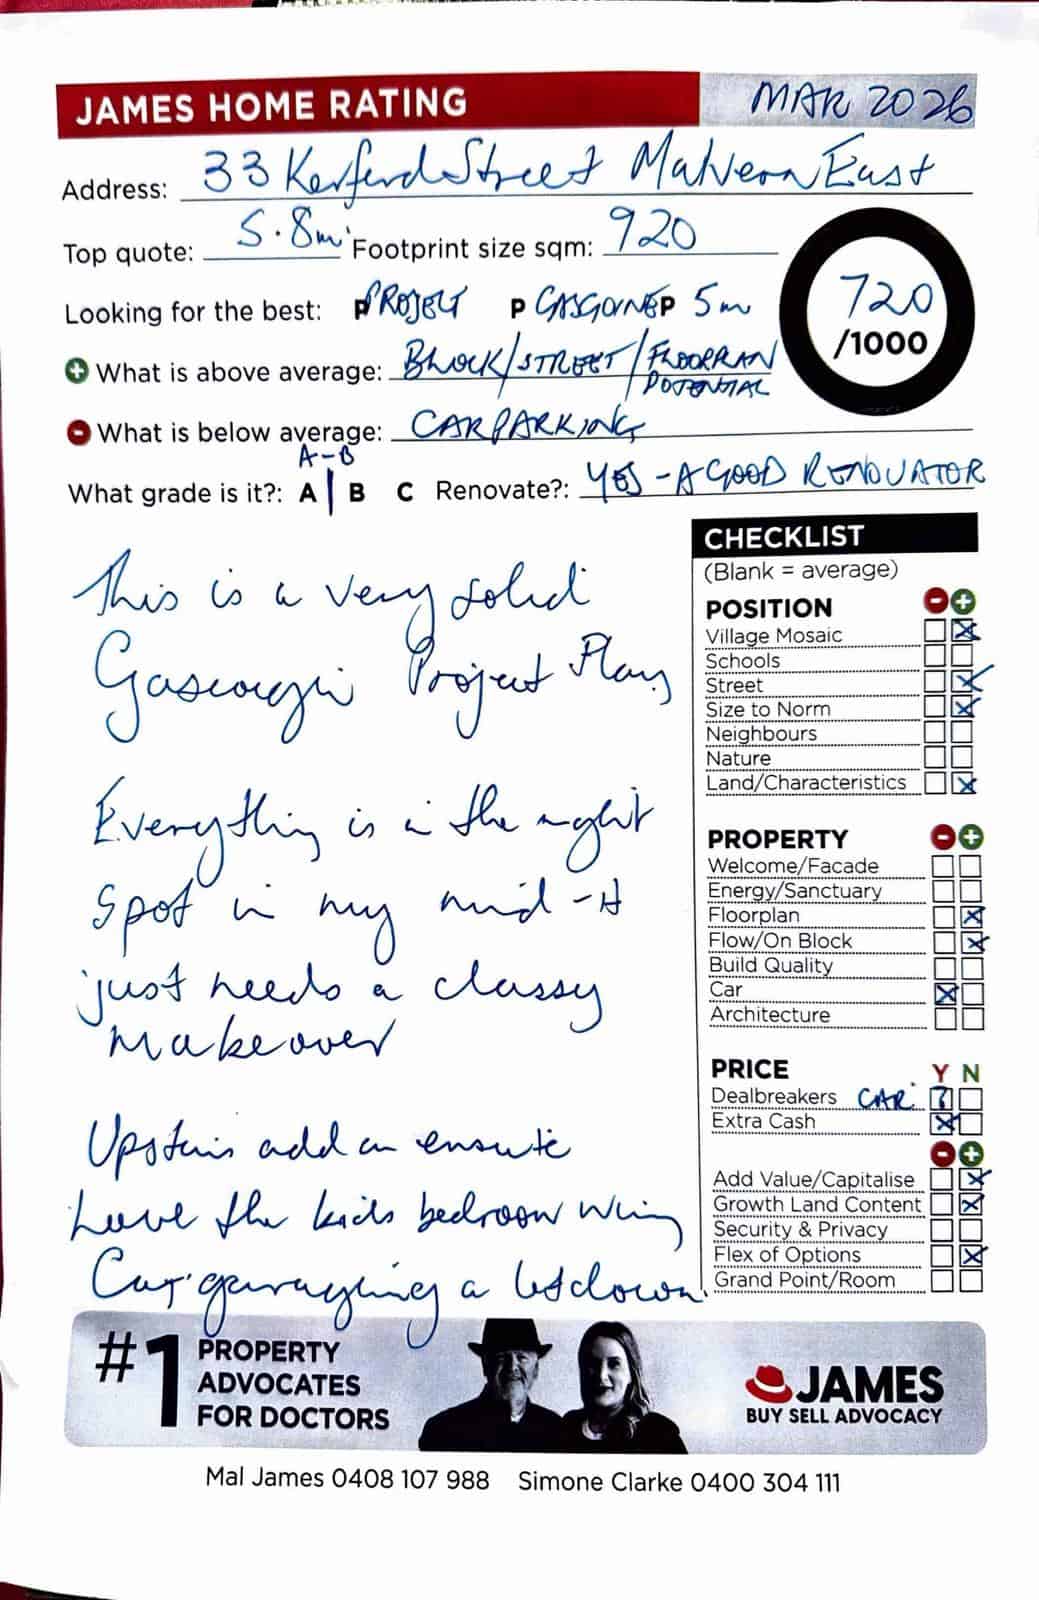 JAMES HOME RATING MAR 2026
Address: 33 Kerferd Street Malvern East
Top quote: 5.8m Footprint size sqm: 920
720
/1000
Looking for the best: P PROJECT P GASCOIGNE P 5m
+ What is above average: BLOCK/STREET/FLOORPLAN
POTENTIAL
- What is below average: CARPARKING
A-B
What grade is it?: A | B C Renovate?: YES - A GOOD RENOVATOR
This is a very solid
Project
Everything is in the right
spot in my mind -
just needs a classy
makeover
Upstairs add an ensuite
Love the kids bedroom wing
Car garaging a letdown.
CHECKLIST
(Blank = average)
POSITION - +
Village Mosaic
Schools
Street
Size to Norm
Neighbours
Nature
Land/Characteristics
PROPERTY - +
Welcome/Facade
Energy/Sanctuary
Floorplan
Flow/On Block
Build Quality
Car
Architecture
PRICE Y N
Dealbreakers CAR ?
Extra Cash
- +
Add Value/Capitalise
Growth Land Content
Security & Privacy
Flex of Options
Grand Point/Room
#1 PROPERTY
ADVOCATES
FOR DOCTORS
JAMES
BUY SELL ADVOCACY
Mal James 0408 107 988 Simone Clarke 0400 304 111